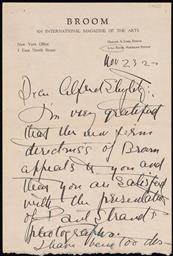 BROOM
AN INTERNATIONAL MAGAZINE OF THE ARTS
New York Office
3 East Ninth Street
Harold A. Loeb, Editor
Nov 23 22
Dear Alfred Stieglitz:
I'm very gratified
that the new form
directions of Broom
appeals to you and
that you are satisfied
with the presentation
of Paul Strand's
photographs.
I have been too des-